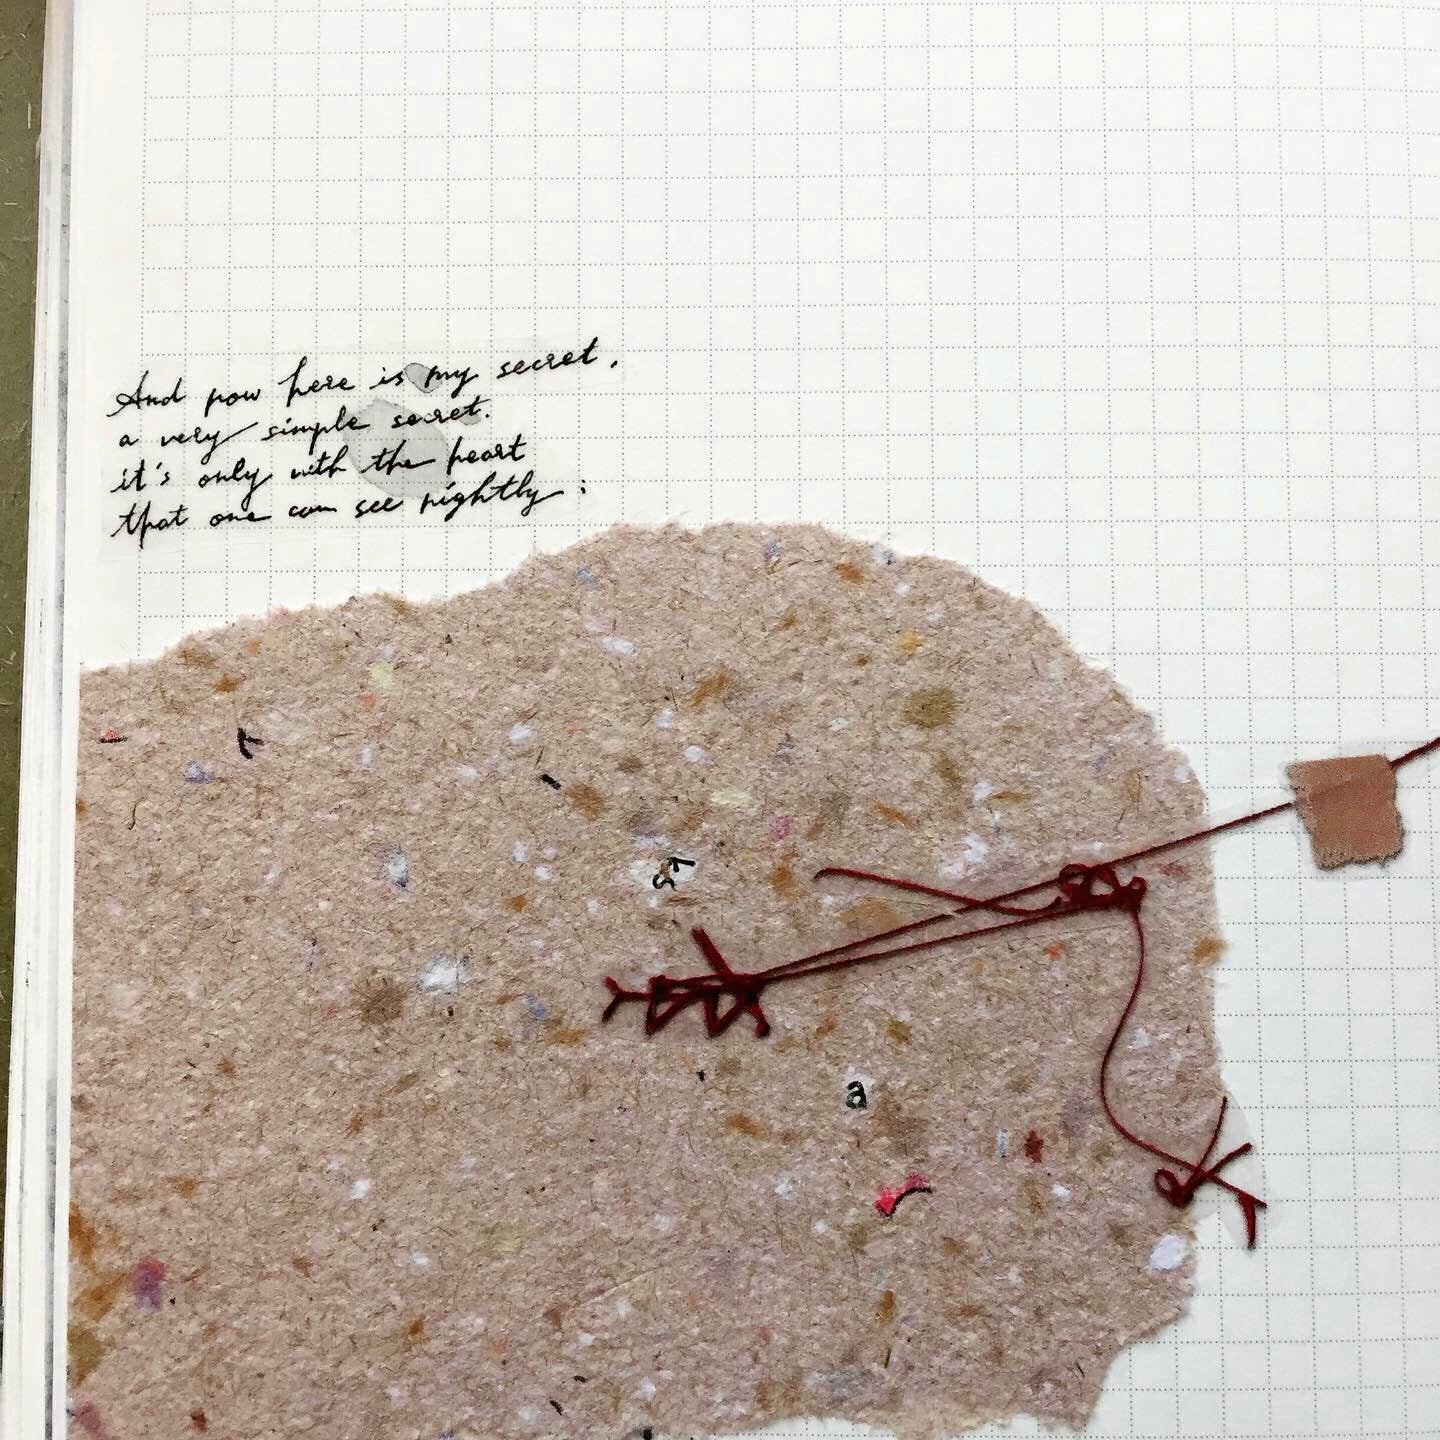 And now here is my secret,
a very simple secret.
it's only with the heart
that one can see rightly:
a